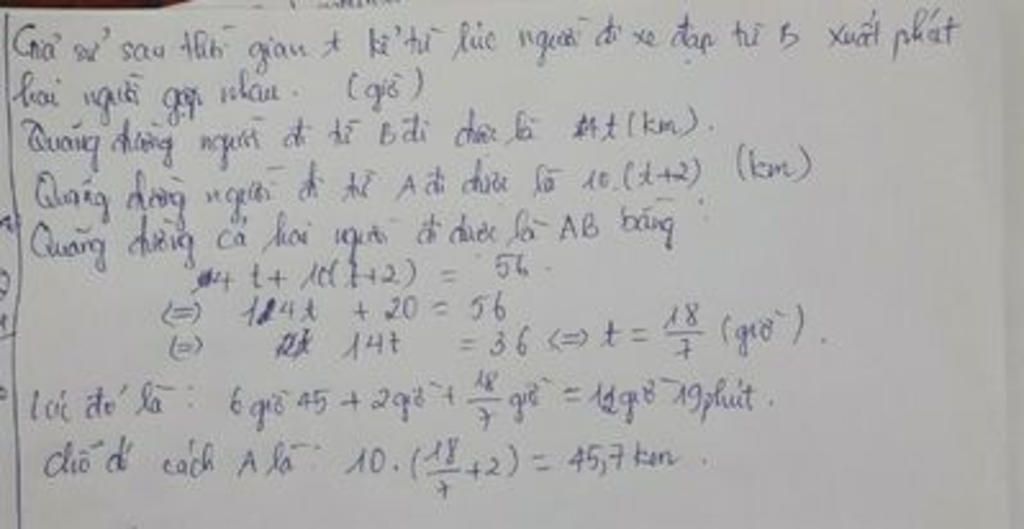 Giả sử sau thời gian t kể từ lúc người đi xe đạp từ B xuất phát
hai người gặp nhau. (giờ)
Quãng đường người đi từ B đi được là 4t (km).
Quãng đường người đi từ A đi được là 10.(t+2) (km)
Quãng đường cả hai người đi được là AB bằng:
4t + 10(t+2) = 56.
(=) 14t + 20 = 56
(=) 14t = 36 <=> t = 18/7 (giờ).
Lúc đó là: 6 giờ 45 + 2 giờ + 18/7 giờ = 11 giờ 19 phút.
Chỗ đó cách A là: 10.(18/7 + 2) = 45,7 km.